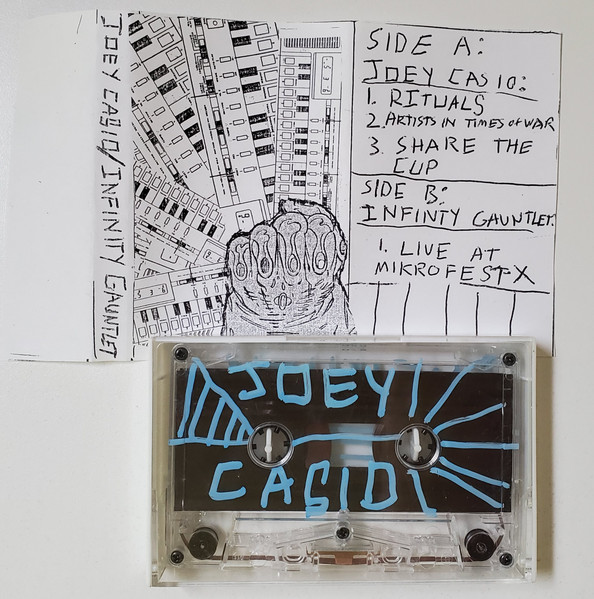 JOEY CASIO/INFINITY GAUNTLET
SIDE A:
JOEY CASIO:
1. RITUALS
2. ARTISTS IN TIMES OF WAR
3. SHARE THE
CUP
SIDE B:
INFINTY GAUNTLET.
1. LIVE AT
MIKROFEST X
JOEY
CASIO